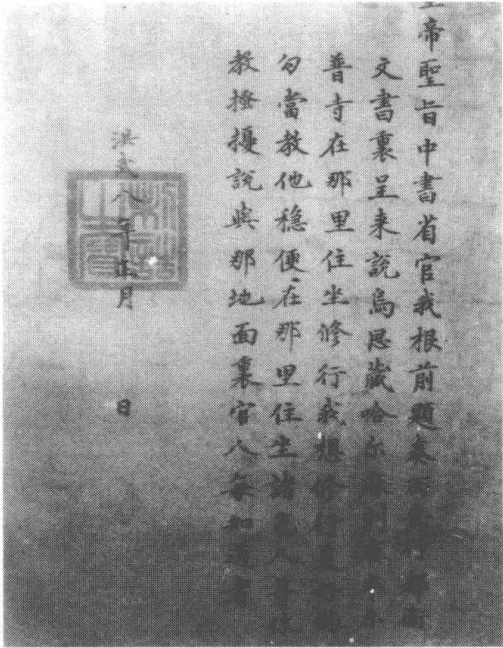 帝聖旨中書省官我根前題奏都衛
文書裏呈来說烏思藏哈尔麻剌
普寺在那里住坐修行我想修行是
勾當教他穩便在那里住坐諸色人等休
教擾說與那地面裏官人每知道者
洪武八年正月 日